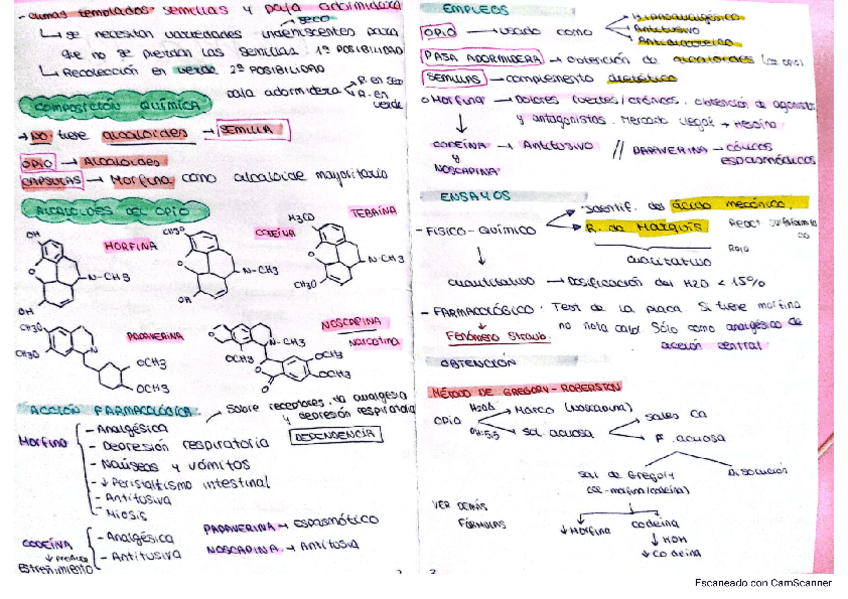 - climas templados semillas y paja adormidera
seco
↳ se necesitan variedades indehiscentes para
que no se pierdan las semillas. 1ª POSIBILIDAD
↳ Recolección en verde. 2ª POSIBILIDAD
COMPOSICIÓN QUÍMICA
paja adormidera
R. en seco
R. en verde
→ NO tiene alcaloides → SEMILLA
OPIO → Alcaloides
CÁPSULAS → Morfina como alcaloide mayoritario
ALCALOIDES DEL OPIO
OH
O
N-CH3
OH
MORFINA
CH3O
O
N-CH3
OH
CODEÍNA
H3CO
O
N-CH3
CH3O
TEBAÍNA
CH3O
CH3O
N
OCH3
OCH3
PAPAVERINA
O
O
N-CH3
OCH3
OCH3
OCH3
O
O
NOSCAPINA
Narcotina
ACCIÓN FARMACOLÓGICA
Sobre receptores. Da analgesia
y depresión respiratoria
DEPENDENCIA
Morfina
- Analgésica
- Depresión respiratoria
- Naúseas y vómitos
- ↓ Peristaltismo intestinal
- Antitusiva
- Miosis
CODEÍNA
↓ produce
estreñimiento
- Analgésica
- Antitusiva
PAPAVERINA → ESPASMÓTICO
NOSCAPINA → Antitusiva
2
EMPLEOS
OPIO → usado como
Hipnoanalgésico
Antitusivo
Antidiarreico
PAJA ADORMIDERA → Obtención de alcaloides
SEMILLAS → complemento dietético
○ Morfina → Dolores fuertes/crónicos. Obtención de agonistas
y antagonistas. Mercado ilegal → Heroína
CODEÍNA
Y
NOSCAPINA
→ Antitusivo // PAPAVERINA → cólicos
espasmódicos
ENSAYOS
- FÍSICO-QUÍMICO
Identif. del ácido mecónico.
R. de Marquis
React
Rojo
cualitativo
cuantitativo → Dosificación del H2O < 15%
- FARMACOLÓGICO. Test de la placa. Si tiene morfina
Fenómeno Straub
no nota calor. Sólo como analgésico de
acción central
OBTENCIÓN
MÉTODO DE GREGORY-ROBERTSON
OPIO
Marco (noscapina)
Sol. acuosa
sales Ca
F. acuosa
Sal de Gregory
Disolución
VER DEMÁS
FÓRMULAS
↓ Morfina
Codeína
↓ KOH
↓ Codeína
3
Escaneado con CamScanner